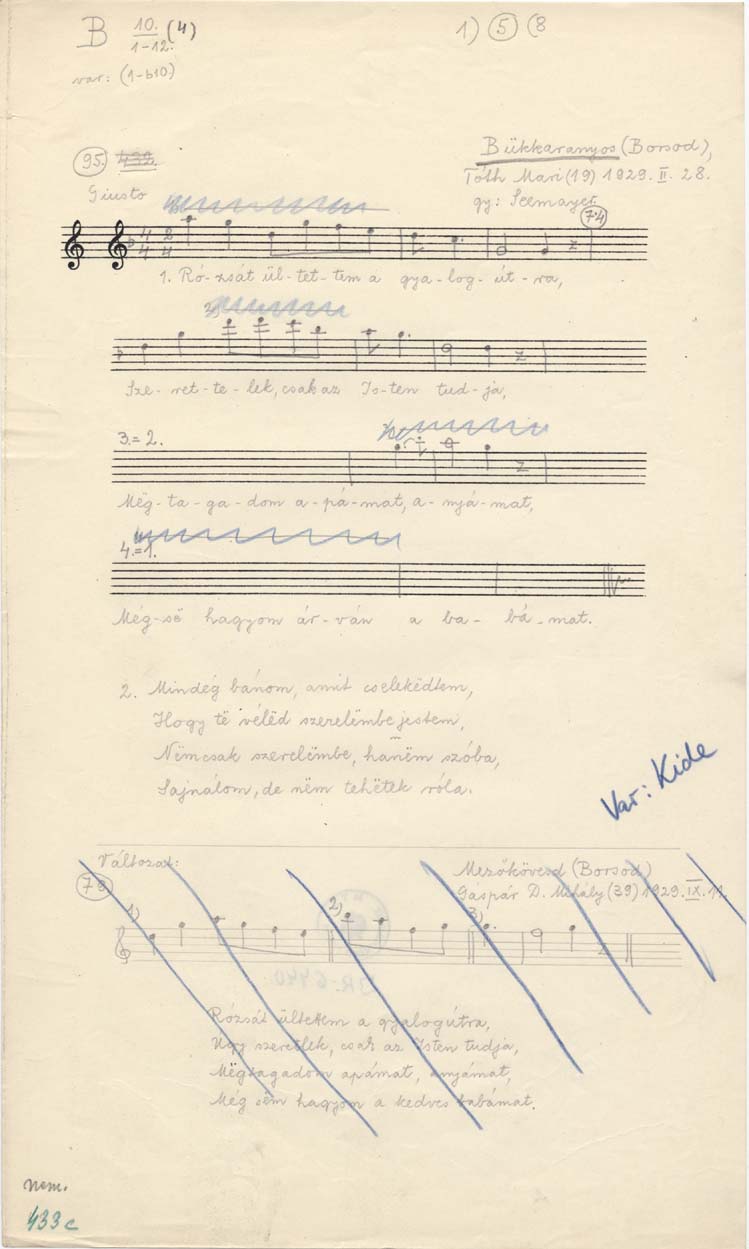 B 10. (4)
1-12.
1) 5 (8
var: (1-b10)
95. 432.
Bükkaranyos (Borsod),
Tóth Mari (19) 1929. II. 28.
gy: Seemayer.
Giusto
74
4 2
4 4
1. Ró-zsát ül-tet-tem a gya-log-út-ra,
2)
Sze-ret-te-lek, csak az Is-ten tud-ja,
3.=2.
Mëg-ta-ga-dom a-pá-mat, a-nyá-mat,
4.=1.
Még-së hagyom ár-ván a ba-bá-mat.
2. Mindég bánom, amit cselekëdtem,
Hogy të vélëd szerelëmbe jestem,
Nëmcsak szerelëmbe, hanëm szóba,
Sajnálom, de nëm tehëtek róla.
Var: Kide
Változat:
Mezőkövesd (Borsod)
Gáspár D. Mihály (39) 1929. IX. 11.
1) 2) 3)
Rózsát ültettem a gyalogútra,
Ugy szeretlek, csak az Isten tudja,
Mëgtagadom apámat, anyámat,
Még sëm hagyom a kedves babámat.
nem.
433c